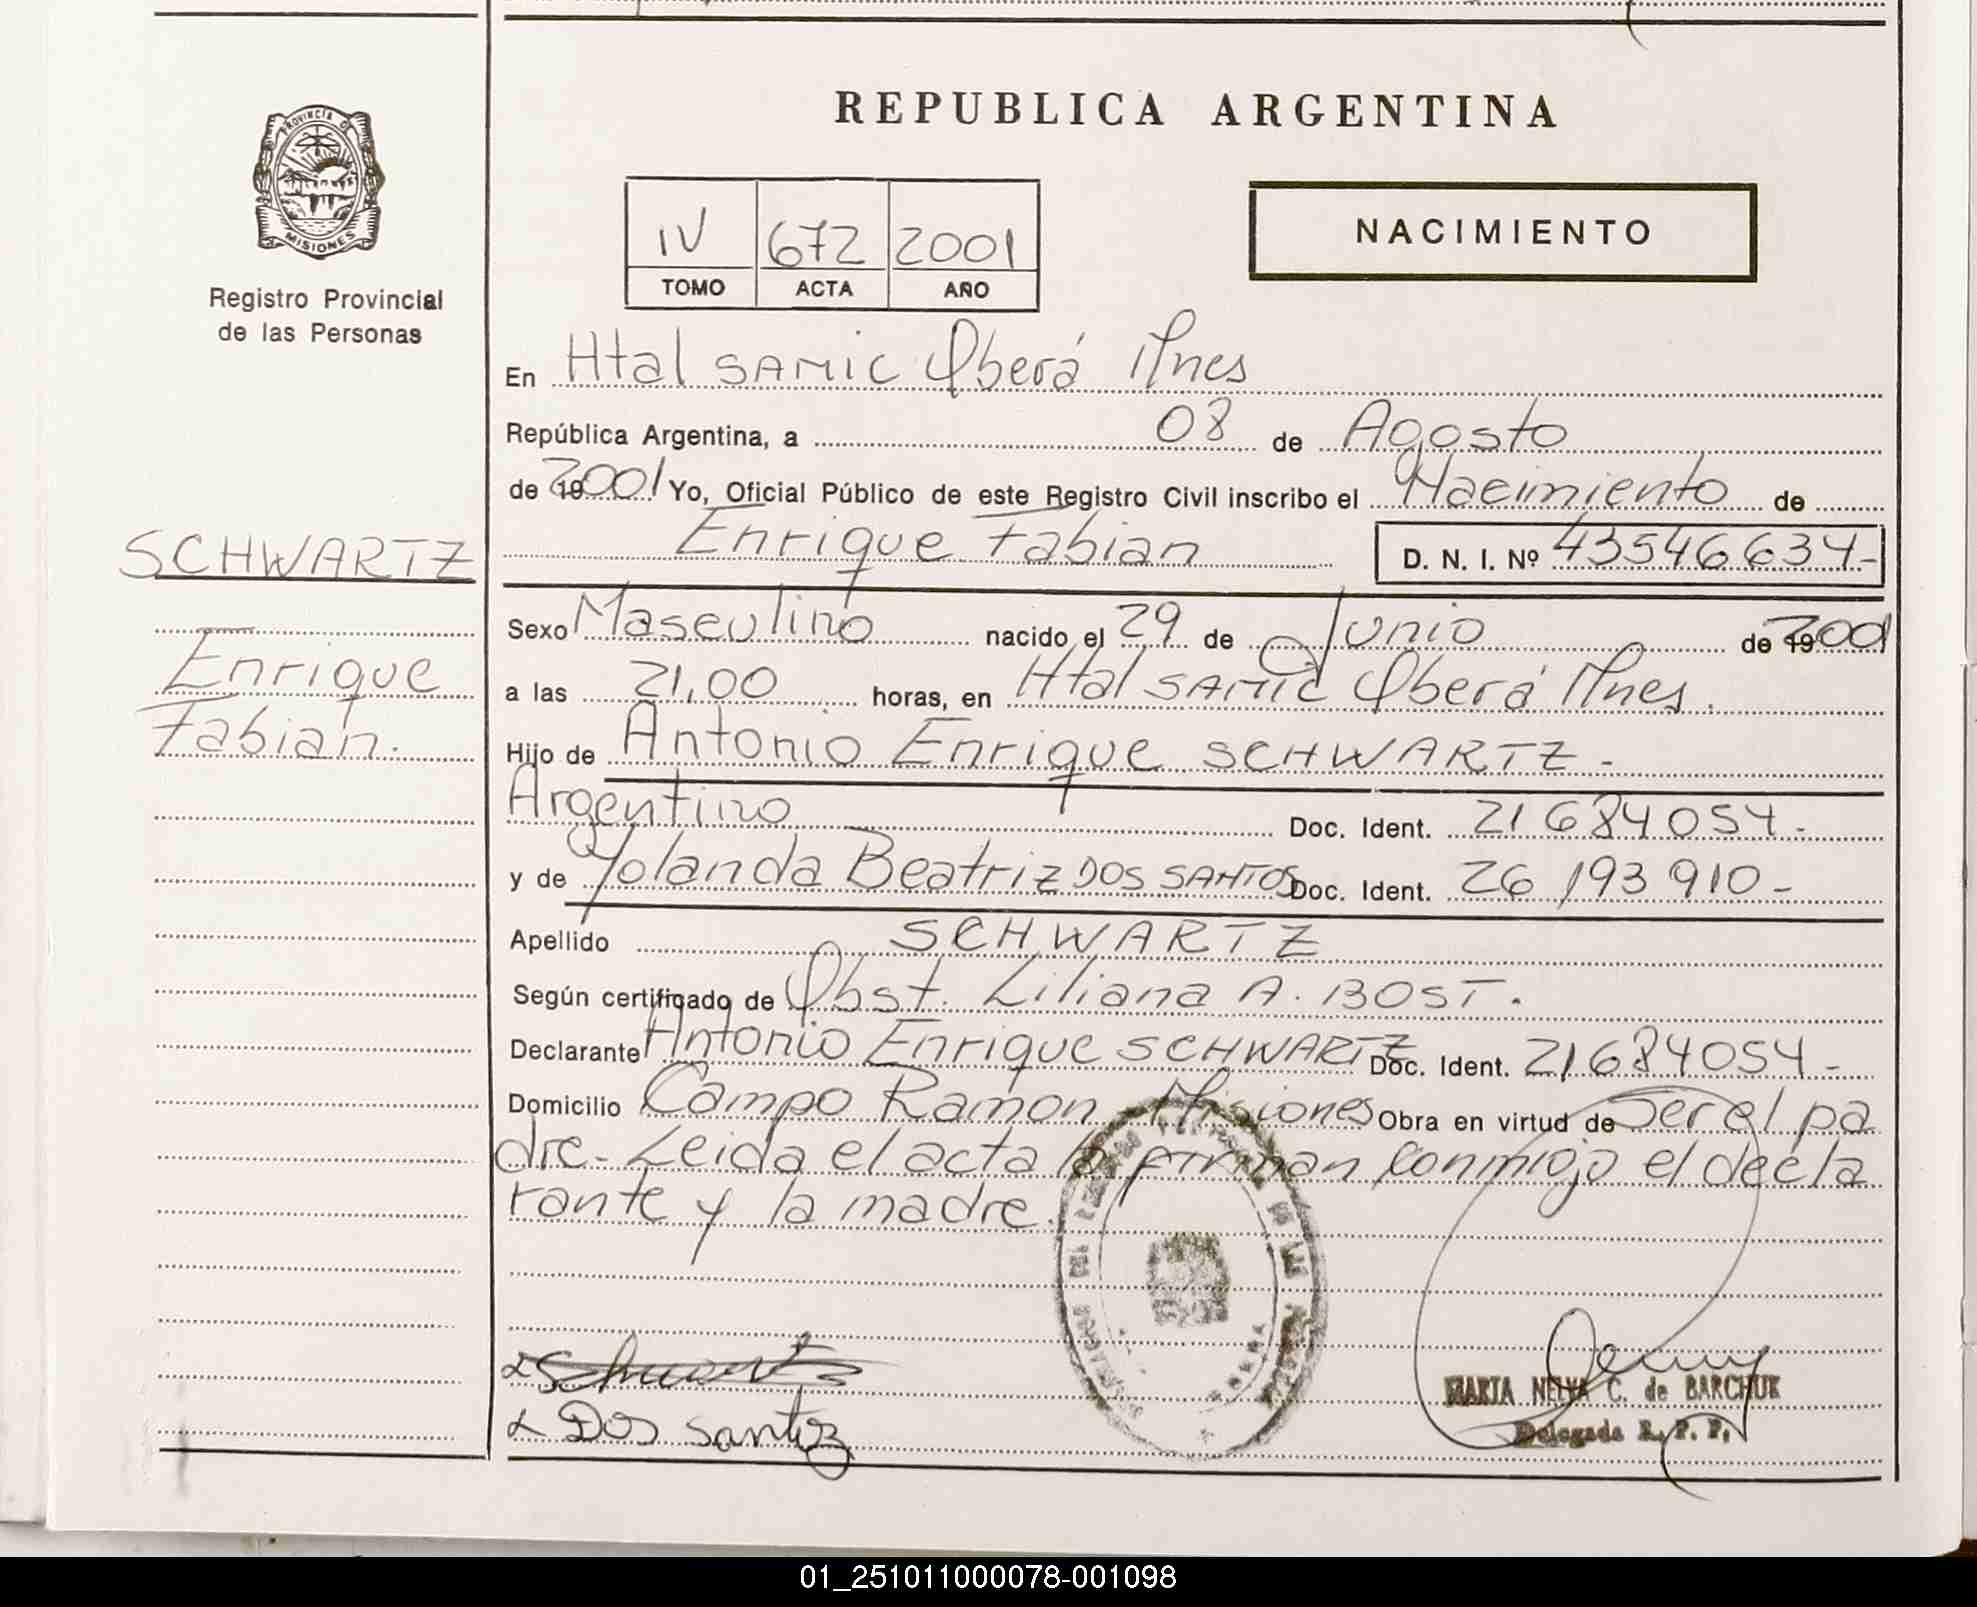 REPUBLICA ARGENTINA
PROVINCIA DE
MISIONES
Registro Provincial
de las Personas
IV 672 2001
TOMO ACTA AÑO
NACIMIENTO
En Htal SAMIC Oberá Mnes
República Argentina, a 08 de Agosto
de 192001 Yo, Oficial Público de este Registro Civil inscribo el Nacimiento de
Enrique Fabian D. N. I. Nº 43546634-
SCHWARTZ
Enrique
Fabian.
Sexo Masculino nacido el 29 de Junio de 192001
a las 21,00 horas, en Htal SAMIC Oberá Mnes.
Hijo de Antonio Enrique SCHWARTZ-
Argentino Doc. Ident. 21684054-
y de Yolanda Beatriz DOS SANTOS Doc. Ident. 26193910-
Apellido SCHWARTZ
Según certificado de Obst. Liliana A. BOST.
Declarante Antonio Enrique SCHWARTZ Doc. Ident. 21684054-
Domicilio Campo Ramon Misiones Obra en virtud de Ser el pa
dre- Leida el acta la firman conmigo el decla
rante y la madre.
Dos Santos
MARIA NELYA C. de BARCHUK
Delegada R. P. P.
01_251011000078-001098